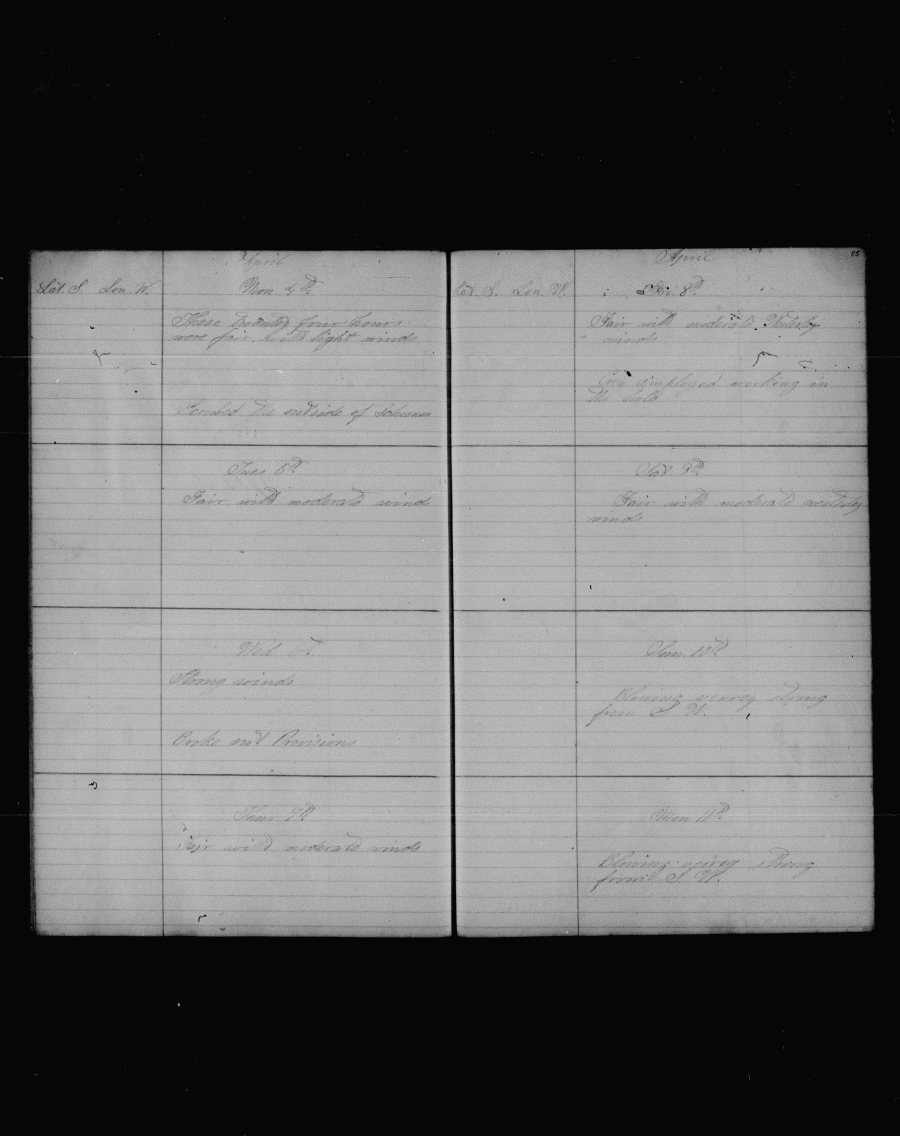 April
Lat. S. Lon. W. Mon 4th
These twenty four hours
were fair with light winds
the outside of Schooner
Tues 5th
Fair with moderate winds
Wed
Strong winds
Broke out Provisions
Thur 7th
Fair with moderate winds
April 85
Lat. S. Lon. W. Fri 8th
Fair with moderate Westerly
winds
Crew employed working in
the hold
Sat 9th
Fair with moderate westerly
winds
Sun 10th
Blowing verrey strong
from S W.
Mon 11th
Blowing verrey strong
from S. W.